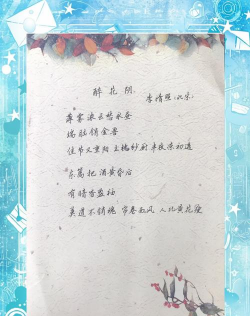 醉花阴
李清照（北宋）
薄雾浓云愁永昼
瑞脑销金兽
佳节又重阳 玉枕纱厨 半夜凉初透
东篱把酒黄昏后
有暗香盈袖
莫道不销魂 帘卷西风 人比黄花瘦